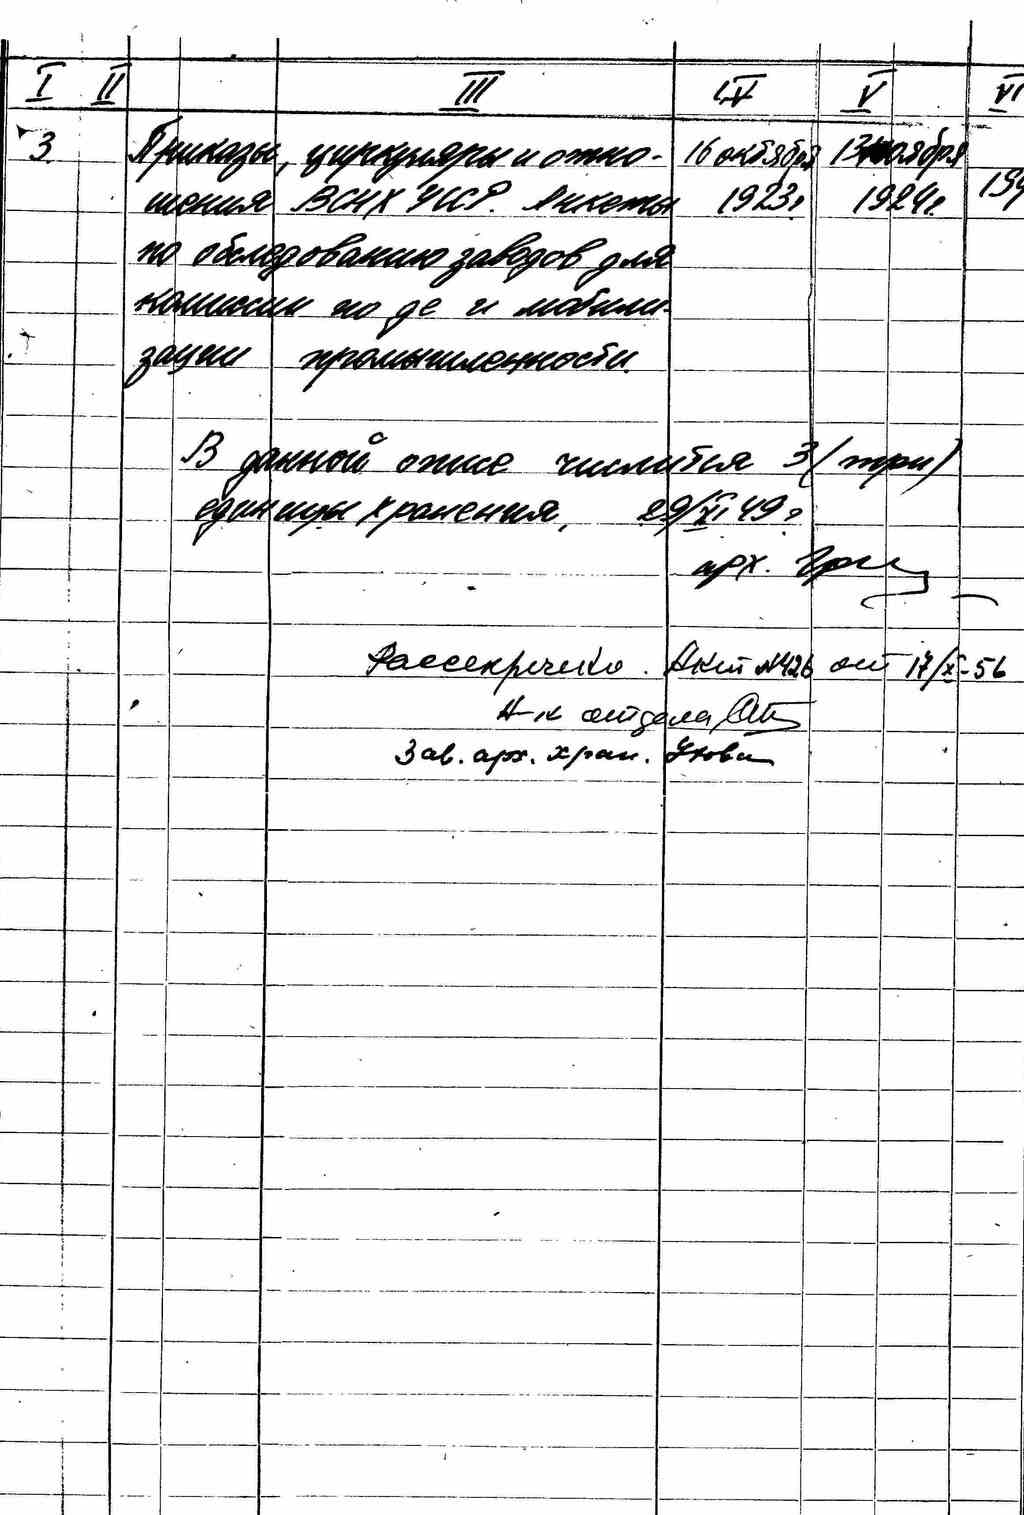 I II III IV V VI
3. Приказы, циркуляры и отно- 16 октября 13 ноября
шения ВСНХ УССР. Анкеты 1923г. 1924г. 194
по обследованию заводов для
комиссии по де и мобили-
зации промышленности.
В данной описи числится 3 (три)
единицы хранения, 29/XI 49г.
арх.
Рассекречено. Акт №426 от 17/XI-56
Н-к отдела
Зав. арх. хран.